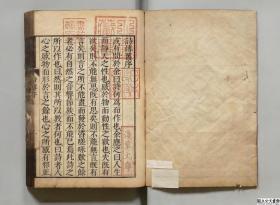 詩傳舊序
或有問於余曰詩何為而作也余應之曰人生
而靜天之性也感於物而動性之欲也夫既有
欲矣則不能無思既有思矣則不能無言既有
言矣則言之所不能盡而發於咨嗟詠歎之餘
者必有自然之音響節族而不能已焉此詩之
所以作也曰然則其所以教者何也曰詩者人
心之感物而形於言之餘也心之所感有邪